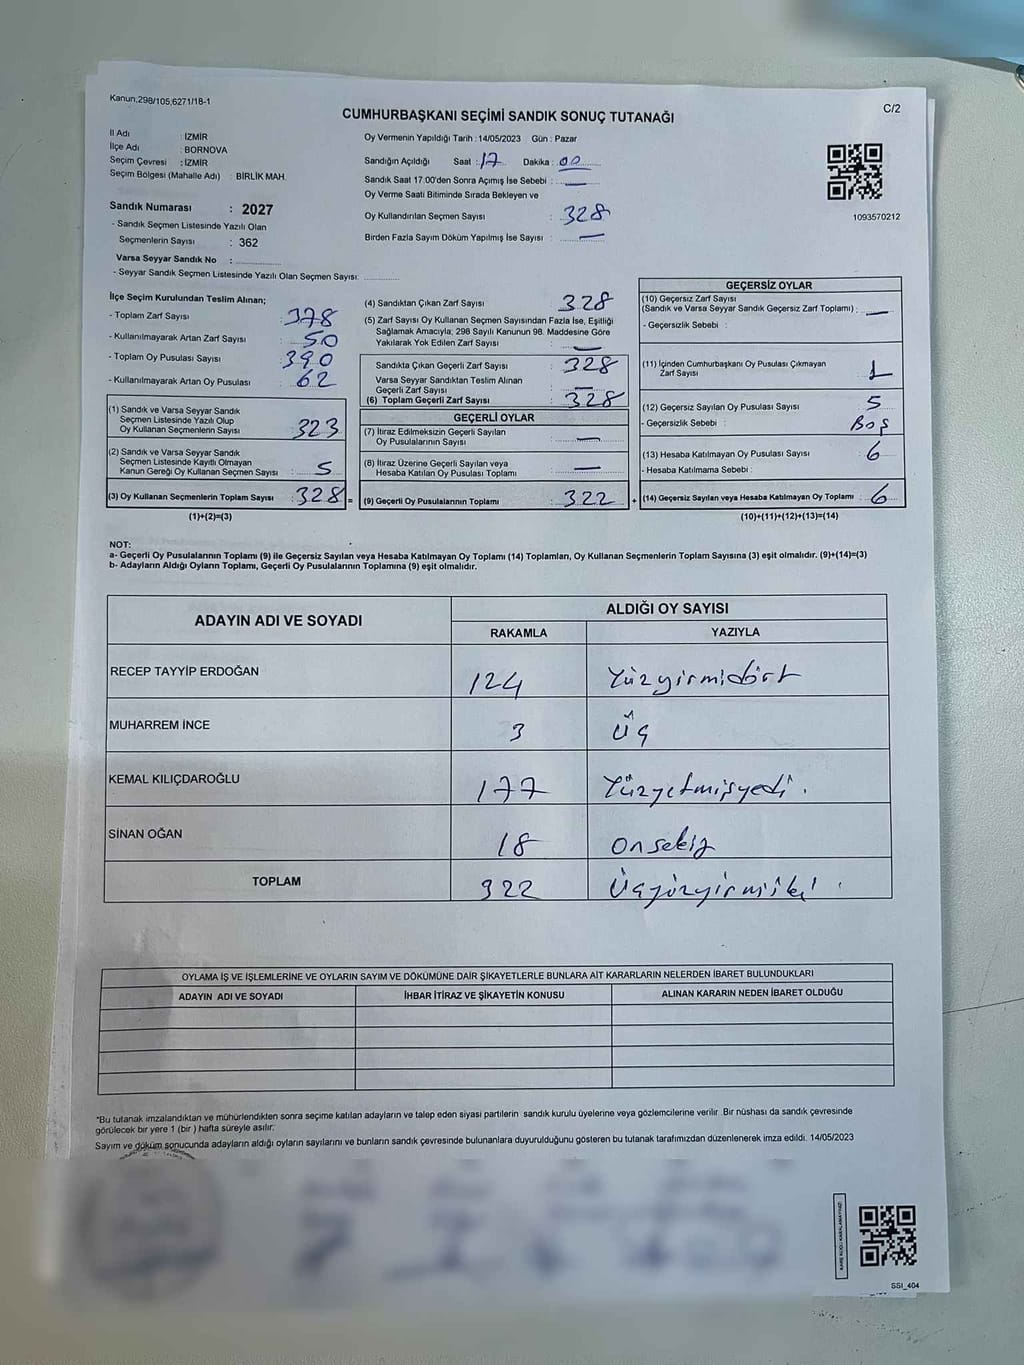 Kanun;298/105,6271/18-1
C/2
CUMHURBAŞKANI SEÇİMİ SANDIK SONUÇ TUTANAĞI
İl Adı : İZMİR
İlçe Adı : BORNOVA
Seçim Çevresi : İZMİR
Seçim Bölgesi (Mahalle Adı) : BİRLİK MAH.
Sandık Numarası : 2027
- Sandık Seçmen Listesinde Yazılı Olan
Seçmenlerin Sayısı : 362
Varsa Seyyar Sandık No :
- Seyyar Sandık Seçmen Listesinde Yazılı Olan Seçmen Sayısı:
Oy Vermenin Yapıldığı Tarih : 14/05/2023 Gün : Pazar
Sandığın Açıldığı Saat : 17 Dakika : 00
Sandık Saat 17.00'den Sonra Açımış İse Sebebi : —
Oy Verme Saati Bitiminde Sırada Bekleyen ve
Oy Kullandırılan Seçmen Sayısı : 328
Birden Fazla Sayım Döküm Yapılmış İse Sayısı : —
1093570212
İlçe Seçim Kurulundan Teslim Alınan;
- Toplam Zarf Sayısı : 378
- Kullanılmayarak Artan Zarf Sayısı : 50
- Toplam Oy Pusulası Sayısı : 390
- Kullanılmayarak Artan Oy Pusulası : 62
(1) Sandık ve Varsa Seyyar Sandık
Seçmen Listesinde Yazılı Olup
Oy Kullanan Seçmenlerin Sayısı : 323
(2) Sandık ve Varsa Seyyar Sandık
Seçmen Listesinde Kayıtlı Olmayan
Kanun Gereği Oy Kullanan Seçmen Sayısı : 5
(3) Oy Kullanan Seçmenlerin Toplam Sayısı : 328 =
(1)+(2)=(3)
(4) Sandıktan Çıkan Zarf Sayısı 328
(5) Zarf Sayısı Oy Kullanan Seçmen Sayısından Fazla İse, Eşitliği
Sağlamak Amacıyla; 298 Sayılı Kanunun 98. Maddesine Göre
Yakılarak Yok Edilen Zarf Sayısı : —
Sandıkta Çıkan Geçerli Zarf Sayısı : 328
Varsa Seyyar Sandıktan Teslim Alınan
Geçerli Zarf Sayısı : —
(6) Toplam Geçerli Zarf Sayısı : 328
GEÇERLİ OYLAR
(7) İtiraz Edilmeksizin Geçerli Sayılan
Oy Pusulalarının Sayısı : —
(8) İtiraz Üzerine Geçerli Sayılan veya
Hesaba Katılan Oy Pusulası Toplamı : —
(9) Geçerli Oy Pusulalarının Toplamı : 322 +
GEÇERSİZ OYLAR
(10) Geçersiz Zarf Sayısı
(Sandık ve Varsa Seyyar Sandık Geçersiz Zarf Toplamı) : —
- Geçersizlik Sebebi :
(11) İçinden Cumhurbaşkanı Oy Pusulası Çıkmayan
Zarf Sayısı : 1
(12) Geçersiz Sayılan Oy Pusulası Sayısı : 5
- Geçersizlik Sebebi : Boş
(13) Hesaba Katılmayan Oy Pusulası Sayısı : 6
- Hesaba Katılmama Sebebi :
(14) Geçersiz Sayılan veya Hesaba Katılmayan Oy Toplamı : 6
(10)+(11)+(12)+(13)=(14)
NOT:
a- Geçerli Oy Pusulalarının Toplamı (9) ile Geçersiz Sayılan veya Hesaba Katılmayan Oy Toplamı (14) Toplamları, Oy Kullanan Seçmenlerin Toplam Sayısına (3) eşit olmalıdır. (9)+(14)=(3)
b- Adayların Aldığı Oyların Toplamı, Geçerli Oy Pusulalarının Toplamına (9) eşit olmalıdır.
ADAYIN ADI VE SOYADI ALDIĞI OY SAYISI
RAKAMLA YAZIYLA
RECEP TAYYİP ERDOĞAN 124 Yüzyirmidört
MUHARREM İNCE 3 Üç
KEMAL KILIÇDAROĞLU 177 Yüzyetmişyedi.
SİNAN OĞAN 18 onsekiz
TOPLAM 322 Üçyüzyirmiiki
OYLAMA İŞ VE İŞLEMLERİNE VE OYLARIN SAYIM VE DÖKÜMÜNE DAİR ŞİKAYETLERLE BUNLARA AİT KARARLARIN NELERDEN İBARET BULUNDUKLARI
ADAYIN ADI VE SOYADI İHBAR İTİRAZ VE ŞİKAYETİN KONUSU ALINAN KARARIN NEDEN İBARET OLDUĞU
*Bu tutanak imzalandıktan ve mühürlendikten sonra seçime katılan adayların ve talep eden siyasi partilerin sandık kurulu üyelerine veya gözlemcilerine verilir. Bir nüshası da sandık çevresinde
görülecek bir yere 1 (bir) hafta süreyle asılır.
Sayım ve döküm sonucunda adayların aldığı oyların sayılarını ve bunların sandık çevresinde bulunanlara duyurulduğunu gösteren bu tutanak tarafımızdan düzenlenerek imza edildi. 14/05/2023
SSI_404